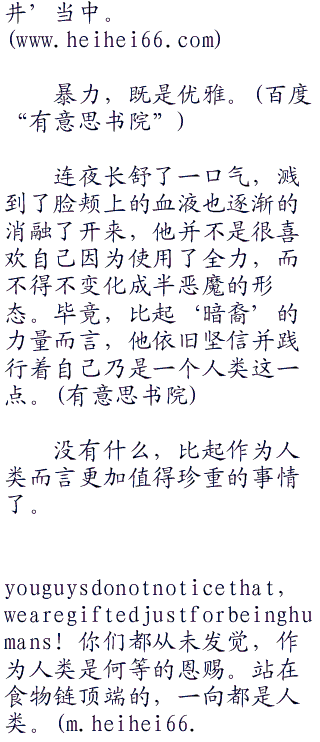 井’当中。
(www.heihei66.com)
暴力，既是优雅。(百度
“有意思书院”)
连夜长舒了一口气，溅
到了脸颊上的血液也逐渐的
消融了开来，他并不是很喜
欢自己因为使用了全力，而
不得不变化成半恶魔的形
态。毕竟，比起‘暗裔’的
力量而言，他依旧坚信并践
行着自己乃是一个人类这一
点。(有意思书院)
没有什么，比起作为人
类而言更加值得珍重的事情
了。
youguysdonotnoticethat,
wearegiftedjustforbeinghu
mans! 你们都从未发觉，作
为人类是何等的恩赐。站在
食物链顶端的，一向都是人
类。(m.heihei66.